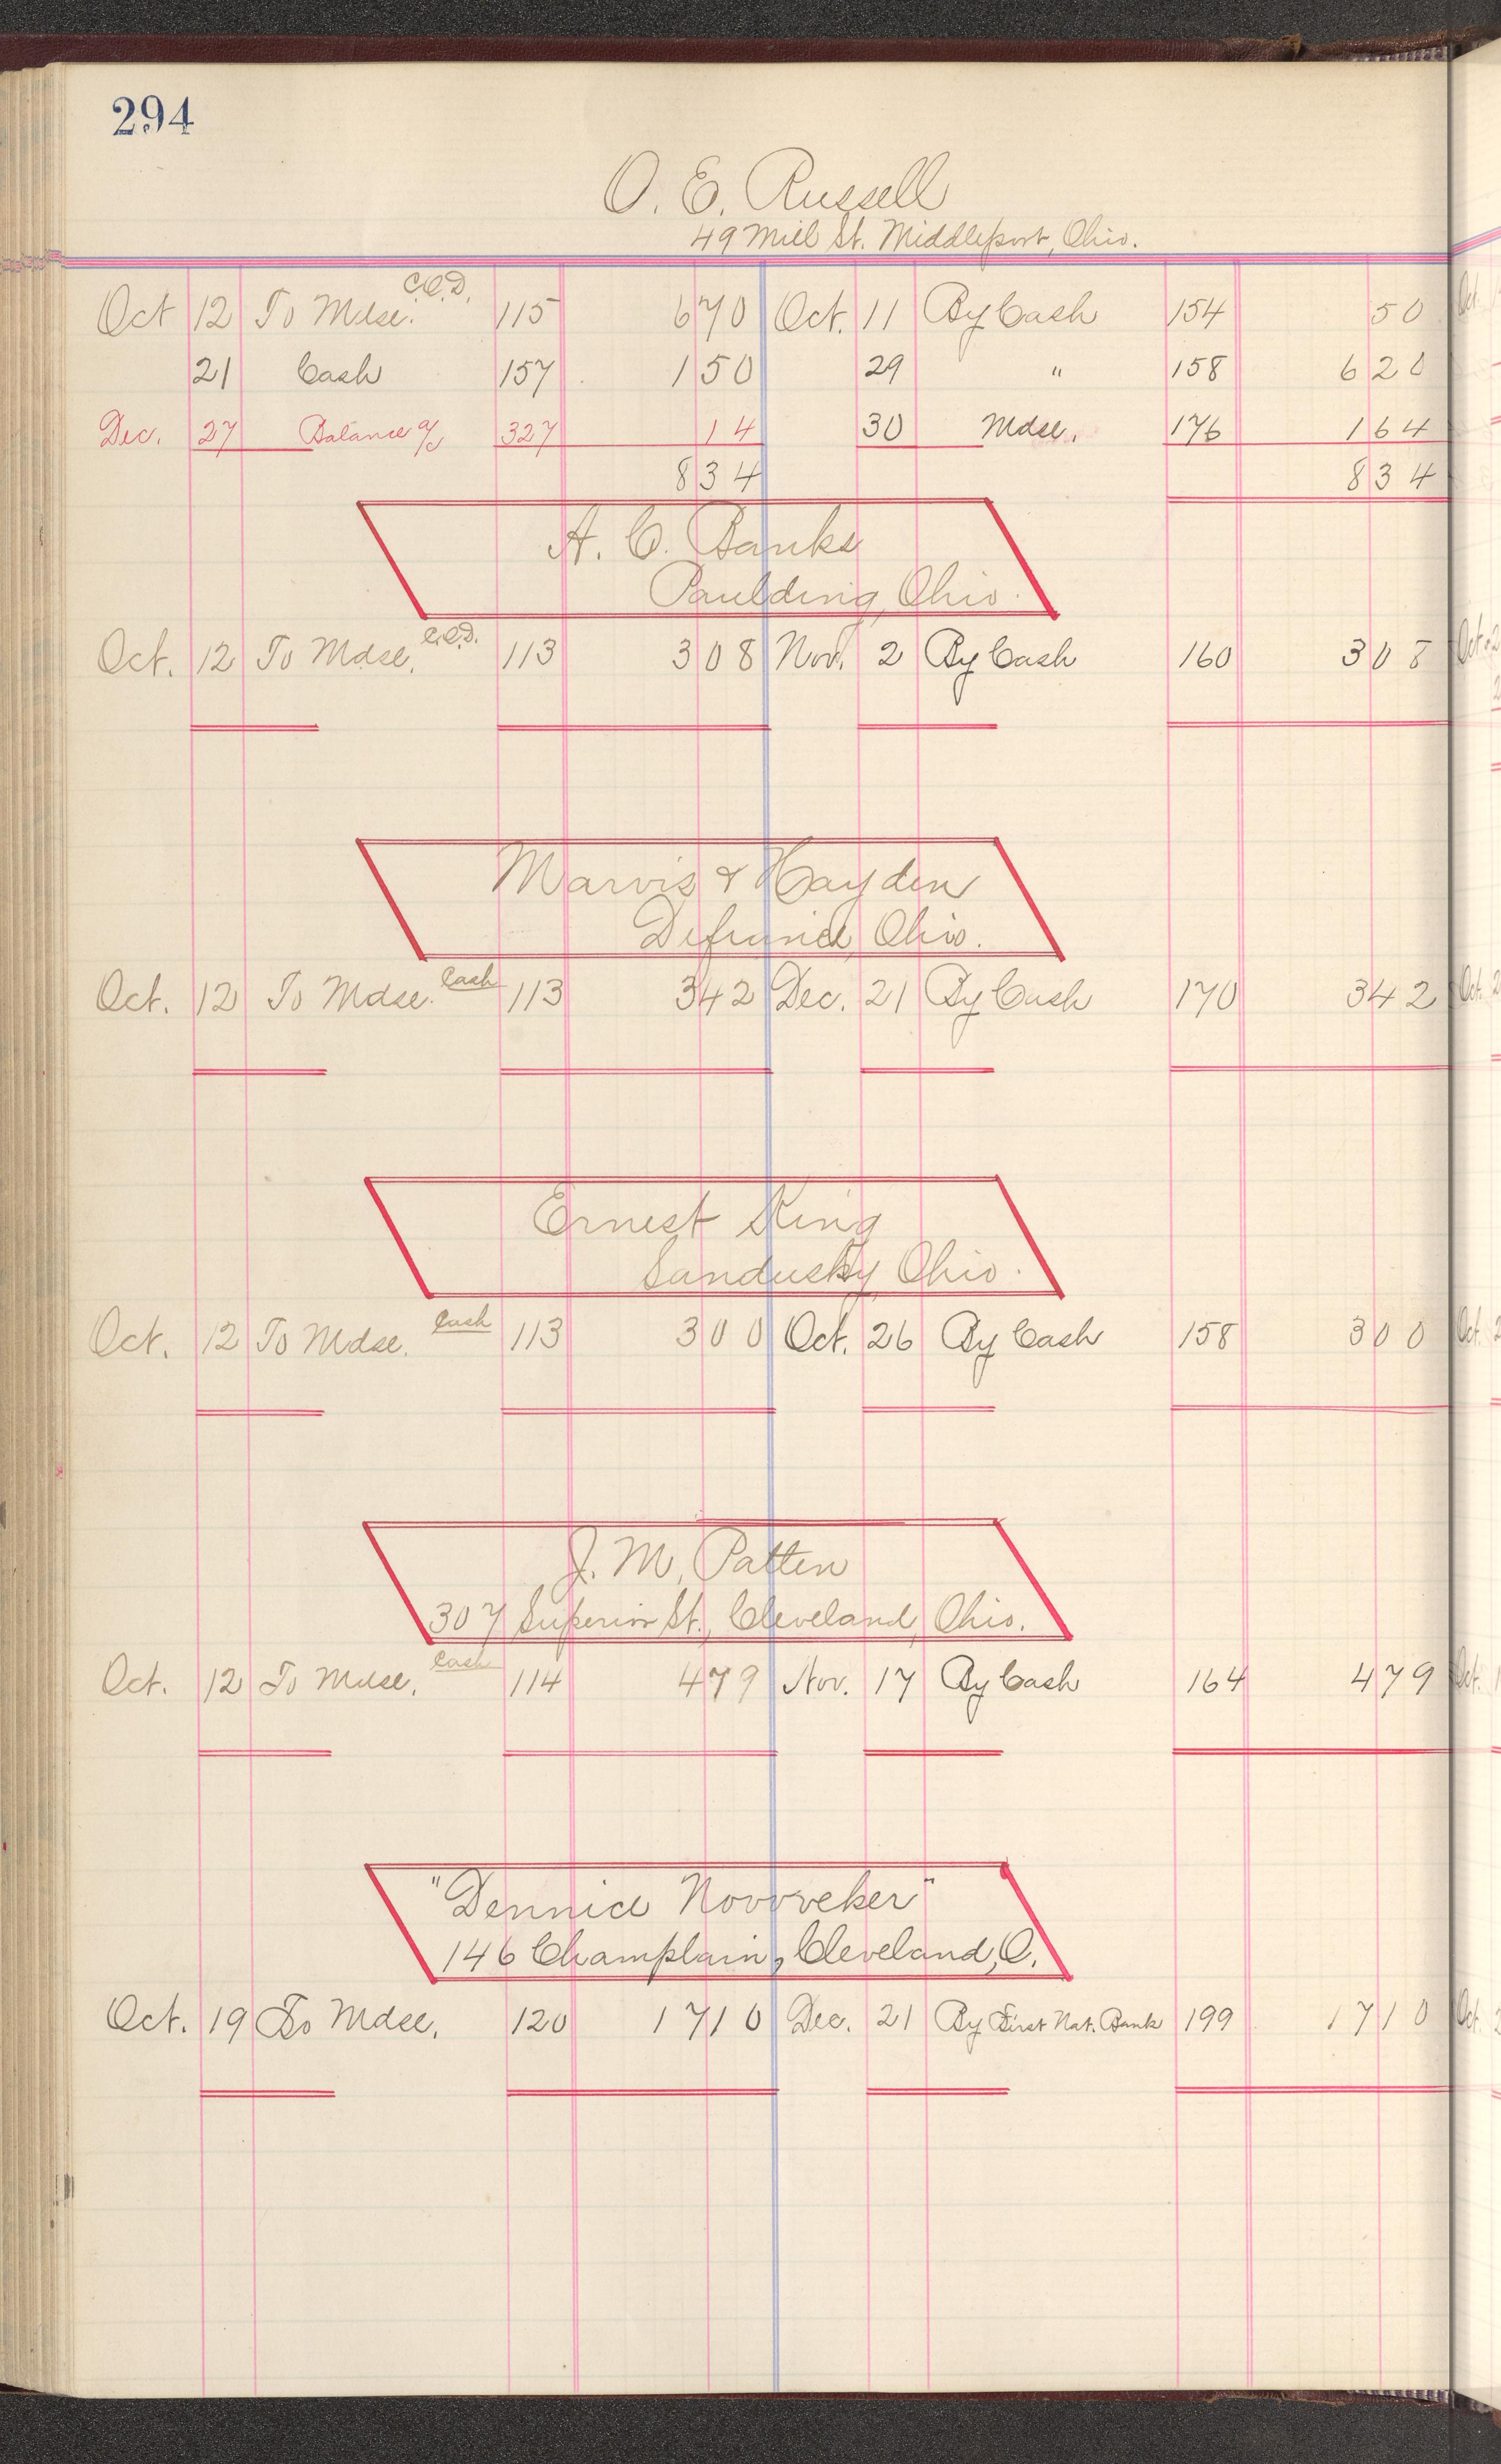 294
O. E. Russell
49 Mill St. Middleport, Ohio.
Oct 12 To Mdse. C.O.D. 115 6 70 Oct. 11 By Cash 154 50
21 Cash 157 1 50 29 " 158 6 20
Dec. 27 Balance a/c 327 14 30 Mdse. 176 1 64
8 34 8 34
A. C. Banks
Paulding, Ohio.
Oct. 12 To Mdse. C.O.D. 113 3 08 Nov. 2 By Cash 160 3 08
Marvis & Hayden
Defiance, Ohio.
Oct. 12 To Mdse. Cash 113 3 42 Dec. 21 By Cash 170 3 42
Ernest King
Sandusky, Ohio.
Oct. 12 To Mdse. Cash 113 3 00 Oct. 26 By Cash 158 3 00
J. M. Patten
307 Superior St., Cleveland, Ohio.
Oct. 12 To Mdse. Cash 114 4 79 Nov. 17 By Cash 164 4 79
"Dennice Novvveker"
146 Champlain, Cleveland, O.
Oct. 19 To Mdse. 120 17 10 Dec. 21 By First Nat. Bank 199 17 10